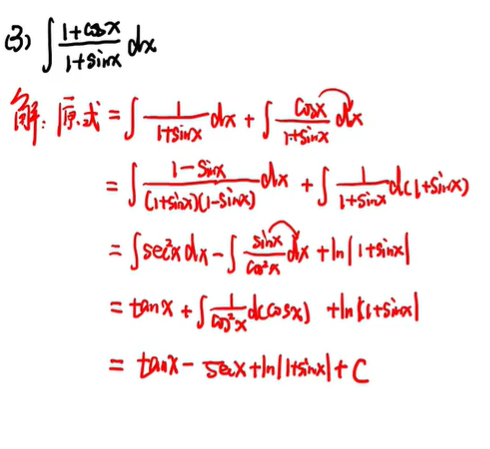 (3) ∫ (1+cosx)/(1+sinx) dx
解: 原式 = ∫ 1/(1+sinx) dx + ∫ cosx/(1+sinx) dx
= ∫ (1-sinx)/((1+sinx)(1-sinx)) dx + ∫ 1/(1+sinx) d(1+sinx)
= ∫ sec²x dx - ∫ sinx/cos²x dx + ln|1+sinx|
= tanx + ∫ 1/cos²x d(cosx) + ln|1+sinx|
= tanx - secx + ln|1+sinx| + C